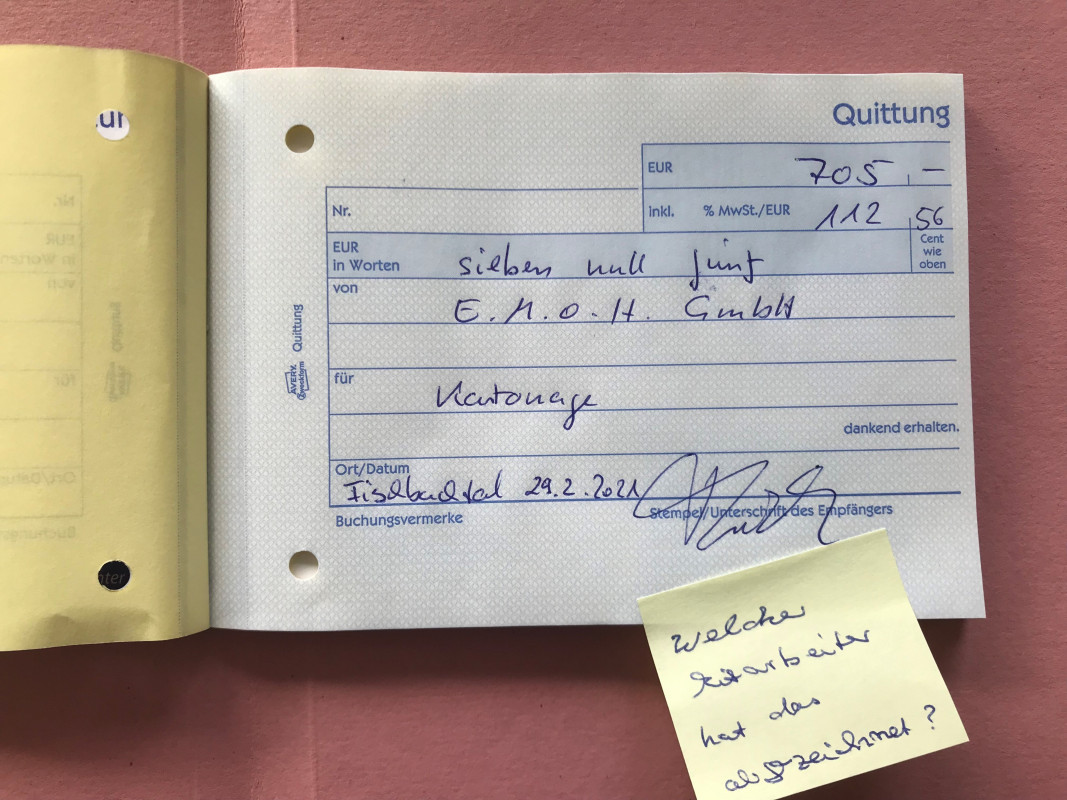 Quittung
EUR 705,–
Nr.
inkl. % MwSt./EUR 112,56
EUR in Worten sieben null fünf
Cent wie oben
von E.M.O.H. GmbH
für Kartonage
dankend erhalten.
Ort/Datum
Fischbachtal 29.2.2021
Buchungsvermerke
Stempel/Unterschrift des Empfängers
AVERY Zweckform Quittung
Welcher
Mitarbeiter
hat das
abgezeichnet?